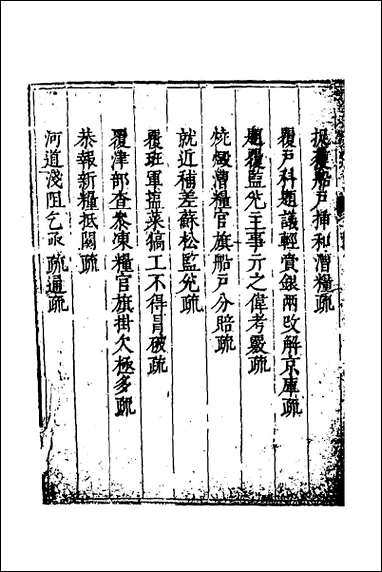 捉獲船戶挿和漕糧疏
覆戶科題議輕賫銀兩改解京庫疏
題覆監兊主事亓之偉考覈疏
燒燬漕糧官旗船戶分賠疏
就近補差蘇松監兊疏
覆班軍搵菜犒工不得冐破疏
覆津部查叅凍糧官旗掛欠極多疏
恭報新糧抵關疏
河道淺阻乞亟疏通疏